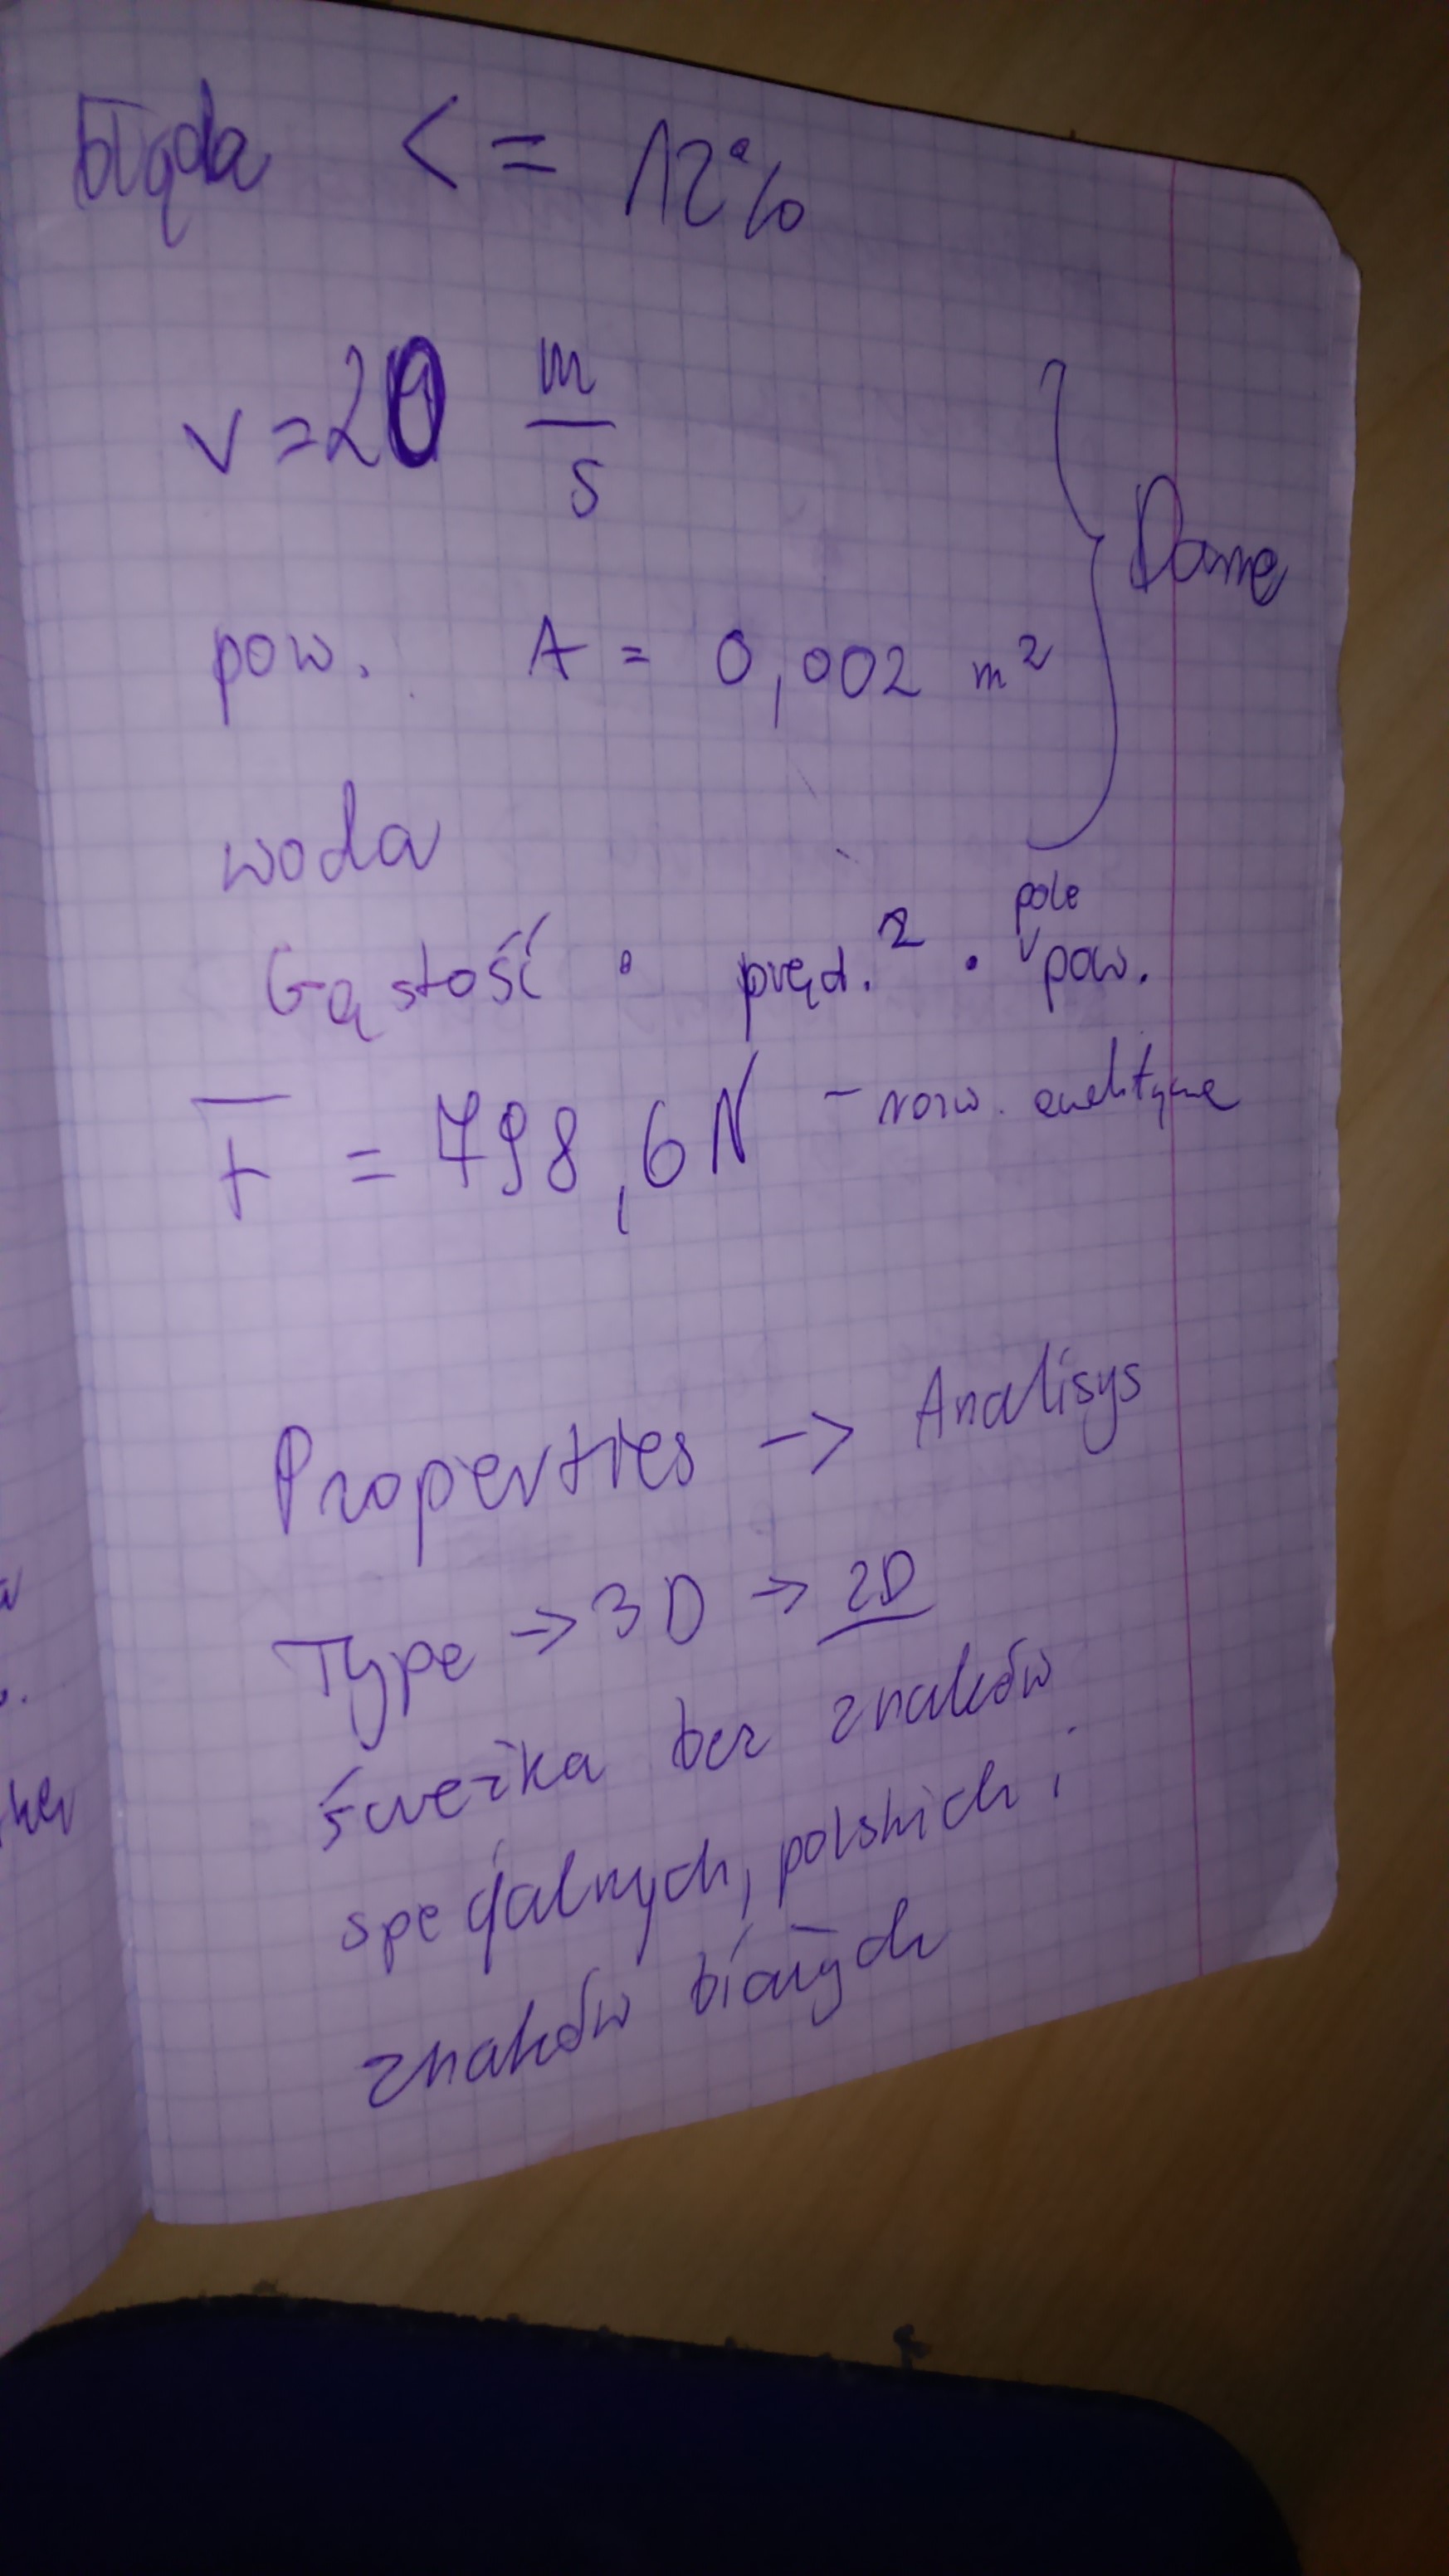 błęda <= 12%
v = 20 m/s
pow. A = 0,002 m²
Dane
woda
Gąstość · pręd.² · pole pow.
F = 798,6 N - rozw. analityczne
Properties -> Analisys
Type -> 3D -> 2D
ścieżka bez znaków
specjalnych, polskich i
znaków białych